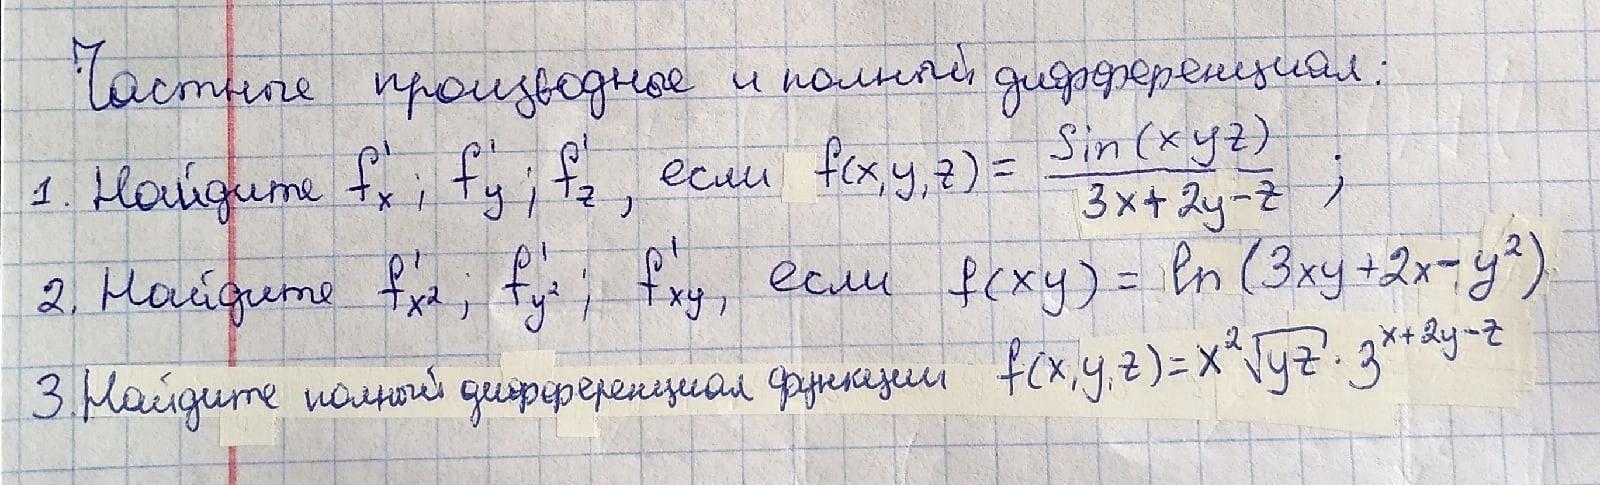 Частные производные и полный дифференциал:
1. Найдите f'ₓ; f'y; f'z, если f(x,y,z) = sin(xyz) / (3x+2y-z);
2. Найдите f'ₓ²; f'y²; f'xy, если f(xy) = ln(3xy+2x-y²)
3. Найдите полный дифференциал функции f(x,y,z)=x²√yz · 3^(x+2y-z)